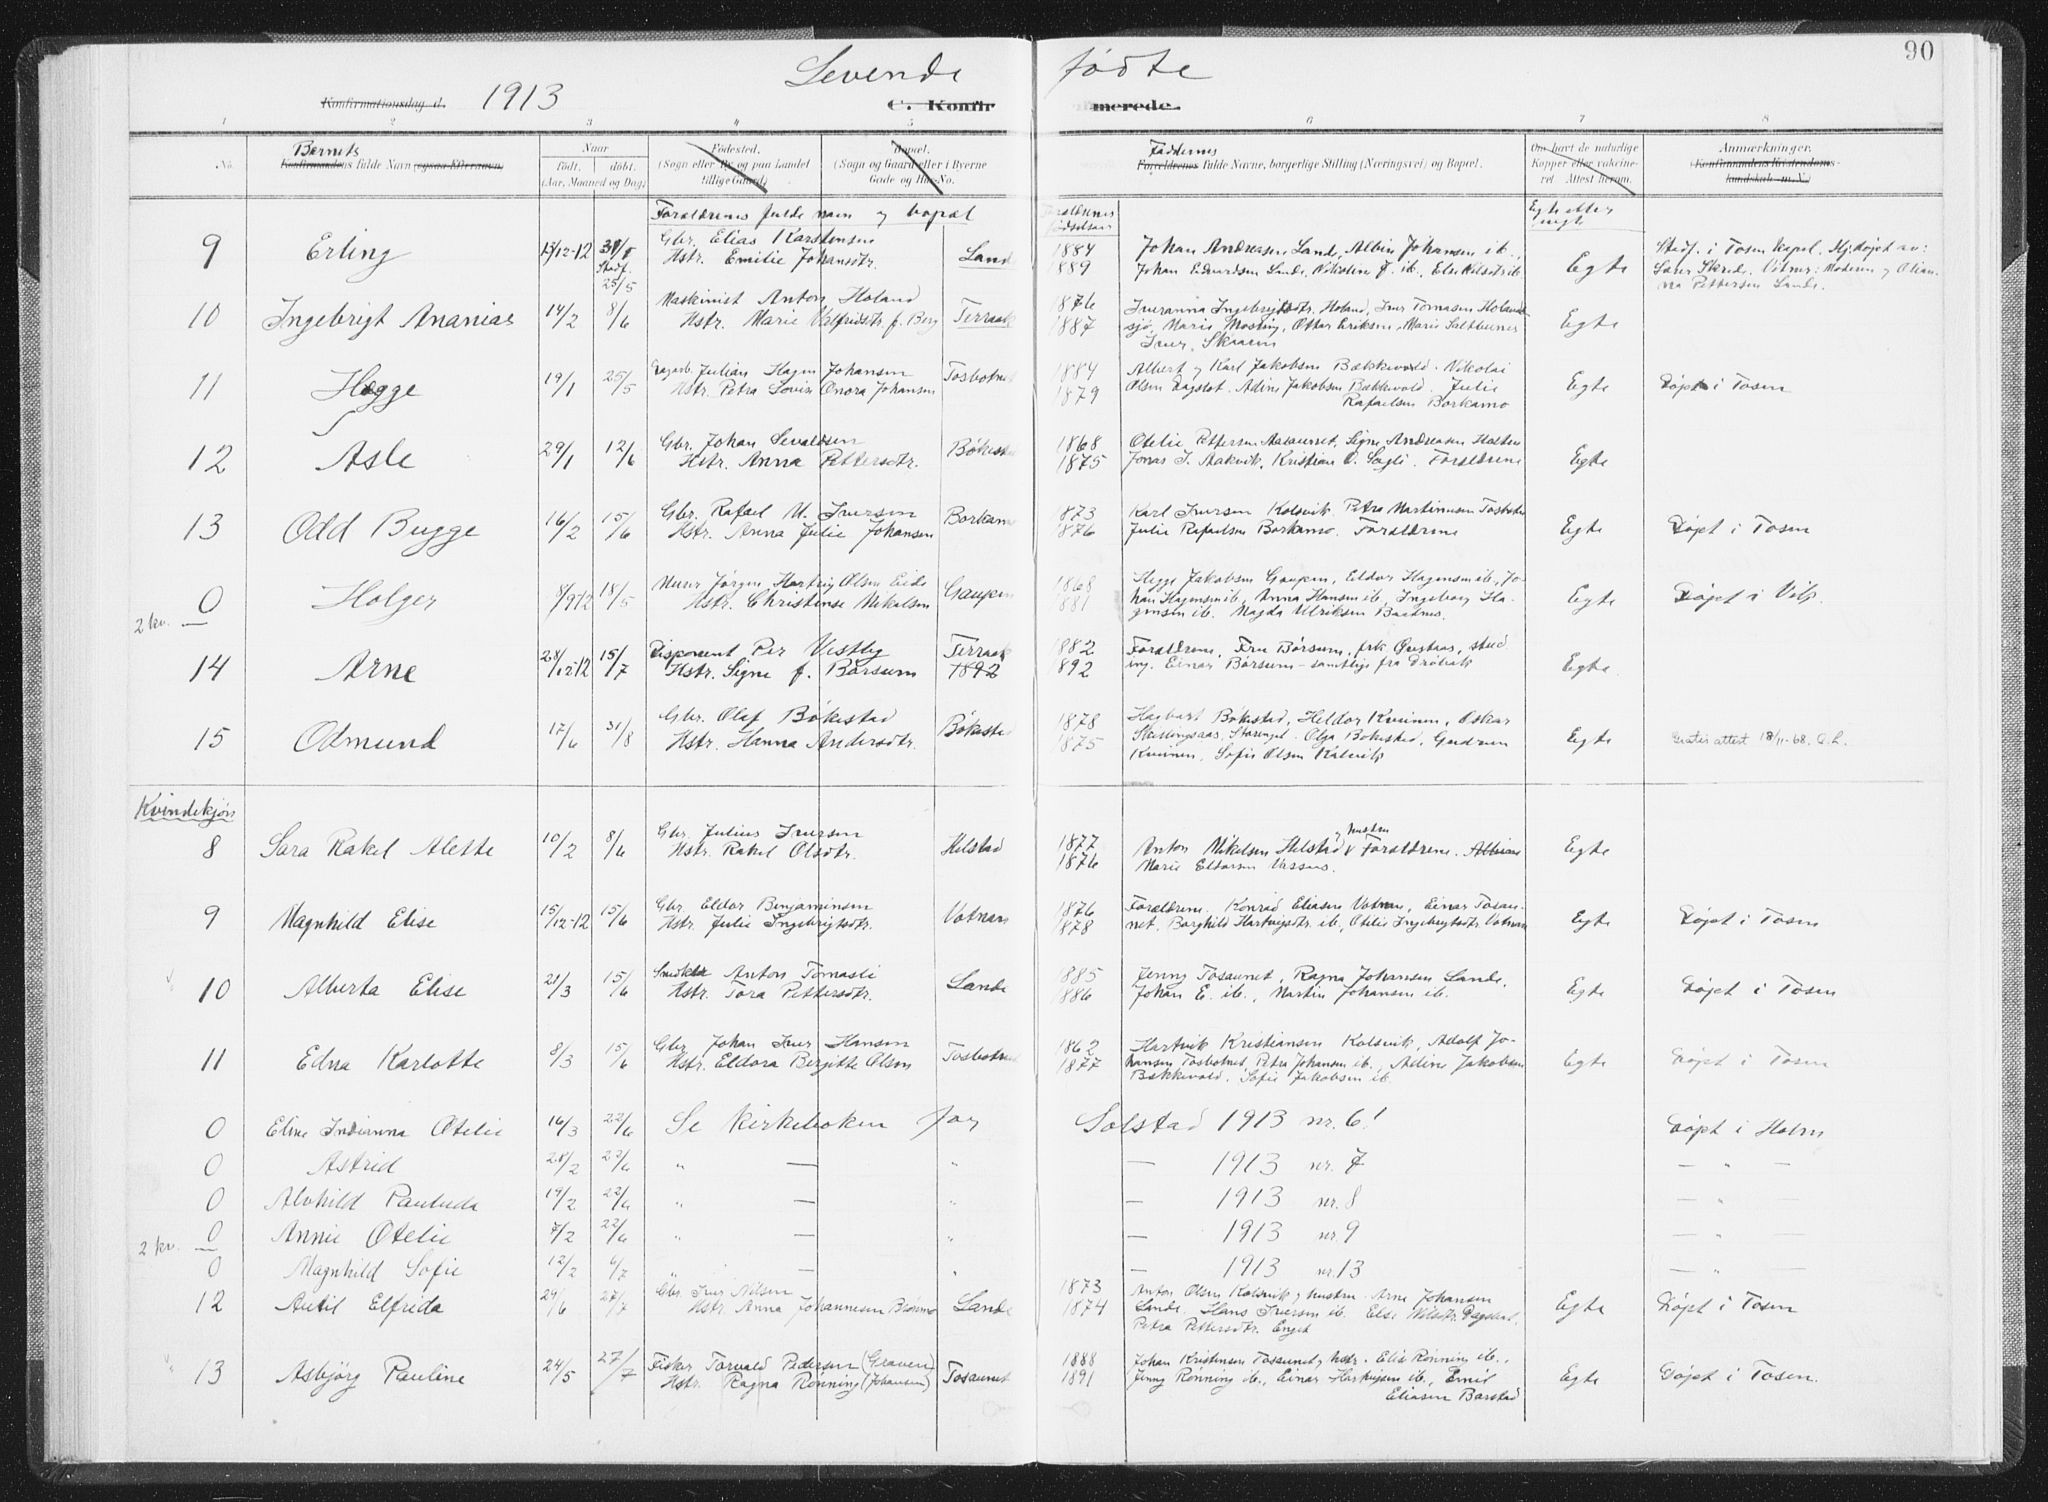 90
Levende fødte
Konfirmationsdag d. 1913 C. Konfirmerede.
1 2 3 4 5 6 7 8
No. Barnets Konfirmandens fulde Navn (ogsaa Efternavn) Naar født, døbt. (Aar, Maaned og Dag) Fødested. (Sogn eller By og paa Landet tillige Gaard) Bopæl. (Sogn og Gaard eller i Byerne Gade og Hus-No. Faddernes Forældrenes fulde Navne, borgerlige Stilling (Næringsvei) og Bopæl. Om havt de naturlige Kopper eller vaccineret. Attest herom. Anmærkninger. (Konfirmandens Kristendomskundskab m.V.)
Forældrenes fulde navn og bopæl Forældrenes fødselsaar Egte eller uegte
9 Erling 15/12-12 31/5 Stadf. 25/5 Gbr. Elias Karstensen Hstr. Emilie Johansdtr. Lande 1884 1889 Johan Andreasen Lande, Albin Johansen ib.
Johan Eduardsen Lande, Nikoline J. ib., Else Nilsdtr ib Egte Stadf. i Tosen kapel. Hj.døpt av: Lars Skrede. Vitner: Moderen og Oliana Pettersen Lande.
10 Ingebrigt Ananias 14/2 8/6 Maskinist Anton Holand Hstr. Marie Valfridsdtr. f. Berg Terraak 1876 1887 Iveranna Ingebrigtsdtr. Holand, Iver Tomasen Holand
sjø, Marie Mosling, Ottar Eriksen, Marie Saltbunes
Iver Skaaren Egte
11 Hegge 19/1 25/5 Dagarb. Julian Hagen Johansen Hstr. Petra Lovise Onora Johansen Tosbotnet 1884 1879 Albert og Karl Jakobsen Bækkevold. Nikolai
Olsen Dagslot. Adine Jakobsen Bækkevold. Julie
Rafaelsen Borkamo Egte Døpt i Tosen
12 Asle 29/1 12/6 Gbr. Johan Sevaldsen Hstr. Anna Pettersdtr. Bøkestad 1868 1875 Otelie Pettersen Aasaunet, Signe Andreasen Holten
Jonas J. Aakvik, Kristian O. Sagli. Forældrene Egte
13 Odd Bugge 16/2 15/6 Gbr. Rafael M. Iversen Hstr. Anna Julie Johansen Borkamo 1873 1876 Karl Iversen Kolsvik. Petra Martinusen Tosbotn
Julie Rafaelsen Borkamo. Forældrene Egte Døpt i Tosen
2 kv. 0 Holger 8/912 18/5 Murer Jørgen Hartvig Olsen Eide Hstr. Christense Mikalsen Gaupen 1868 1881 Hegge Jakobsen Gaupen, Eldor Hagensen ib., Jo-
han Hagensen ib., Anna Hansen ib., Ingeborg Ha-
gensen ib. Magda Ulriksen Bustnes. Egte Døpt i Velf.
14 Arne 28/12-12 15/7 Disponent Per Vestby Hstr. Signe f. Børsum Terraak 1892 1882 1892 Forældrene, Fru Børsum, frk. Quistaas, stud
ing. Einar Børsum - samtlige fra Drøbak Egte
15 Odmund 17/6 31/8 Gbr. Olaf Bøkestad Hstr. Hanna Andersdtr. Bøkestad 1878 1875 Hagbart Bøkestad, Heldor Kvinen, Oskar
Skillingsaas, Storengel. Olga Bøkestad, Gudrun
Kvinen, Sofie Olsen Kalvik Egte Gratis attest 18/11-68. O.L.
Kvindekjøn
8 Sara Rakel Alette 10/2 8/6 Gbr. Julius Iversen Hstr. Rakel Olsdtr. Helstad 1877 1876 Anton Mikalsen Helstad og hustru Forældrene.
Marie Eldorsen Vassus. Egte
9 Magnhild Elise 15/12-12 15/6 Gbr. Eldor Benjaminsen Hstr. Julie Ingebrigtsdtr. Votnan 1876 1878 Forældrene. Konrad Eliasen Votnan, Einar Tosau-
net. Borghild Hartvigsdtr. ib., Otelie Ingebrigtsdtr Votnan Egte Døpt i Tosen
10 Alberta Elise 21/3 15/6 Anton Tomasli Hstr. Tora Pettersdtr. Lande 1885 1886 Jenny Tosaunet, Ragna Johansen Lande,
Johan E. ib., Martin Johansen ib. Egte Døpt i Tosen
11 Edna Karlotte 8/3 15/6 Gbr. Johan Iver Hansen Hstr. Eldora Bergitte Olsen Tosbotnet 1862 1877 Hartvik Kristiansen Kolsvik, Adolf Jo-
hansen Tosbotnet, Petra Johansen ib., Adine Jakobsen
Bækkevold. Sofie Jakobsen ib. Egte Døpt i Tosen
0 Eline Indianna Otelie 16/3 22/6 Se kirkeboken for Solstad 1913 nr. 6! Døpt i Holm
0 Astrid 28/2 22/6 " — " — 1913 nr. 7 — " —
0 Alvhild Pauluda 19/2 22/6 " — " — 1913 nr. 8 — " —
2 kv. 0 Annie Otelie 7/2 22/6 " — " — 1913 nr. 9 — " —
0 Magnhild Sofie 12/2 6/7 " — " — 1913 nr. 13 — " —
12 Autil Elfrida 29/6 27/7 Gbr. Iver Nilsen Hstr. Anna Johannesen Brønmo Lande 1873 1874 Anton Olsen Kolsvik og hustru. Arne Johansen
Lande. Hans Iversen ib. Else Nilsdtr. Dagslot,
Petra Pettersdtr. Enget Egte Døpt i Tosen
13 Asbjørg Pauline 24/5 27/7 Fisker Torvald Pedersen (Graven) Hstr. Ragna Rønning (Johansen) Tosaunet 1888 1891 Johan Kristensen Tosaunet og hstr. Elise Rønning ib.,
Jenny Rønning ib., Einar Hartvigsen ib., Emil
Eliasen Barstad Egte Døpt i Tosen.